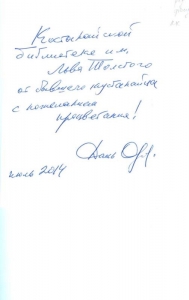 Костанайской
библиотеке им.
Льва Толстого
от бывшего кустанайца
с пожеланием
процветания!
июль 2014